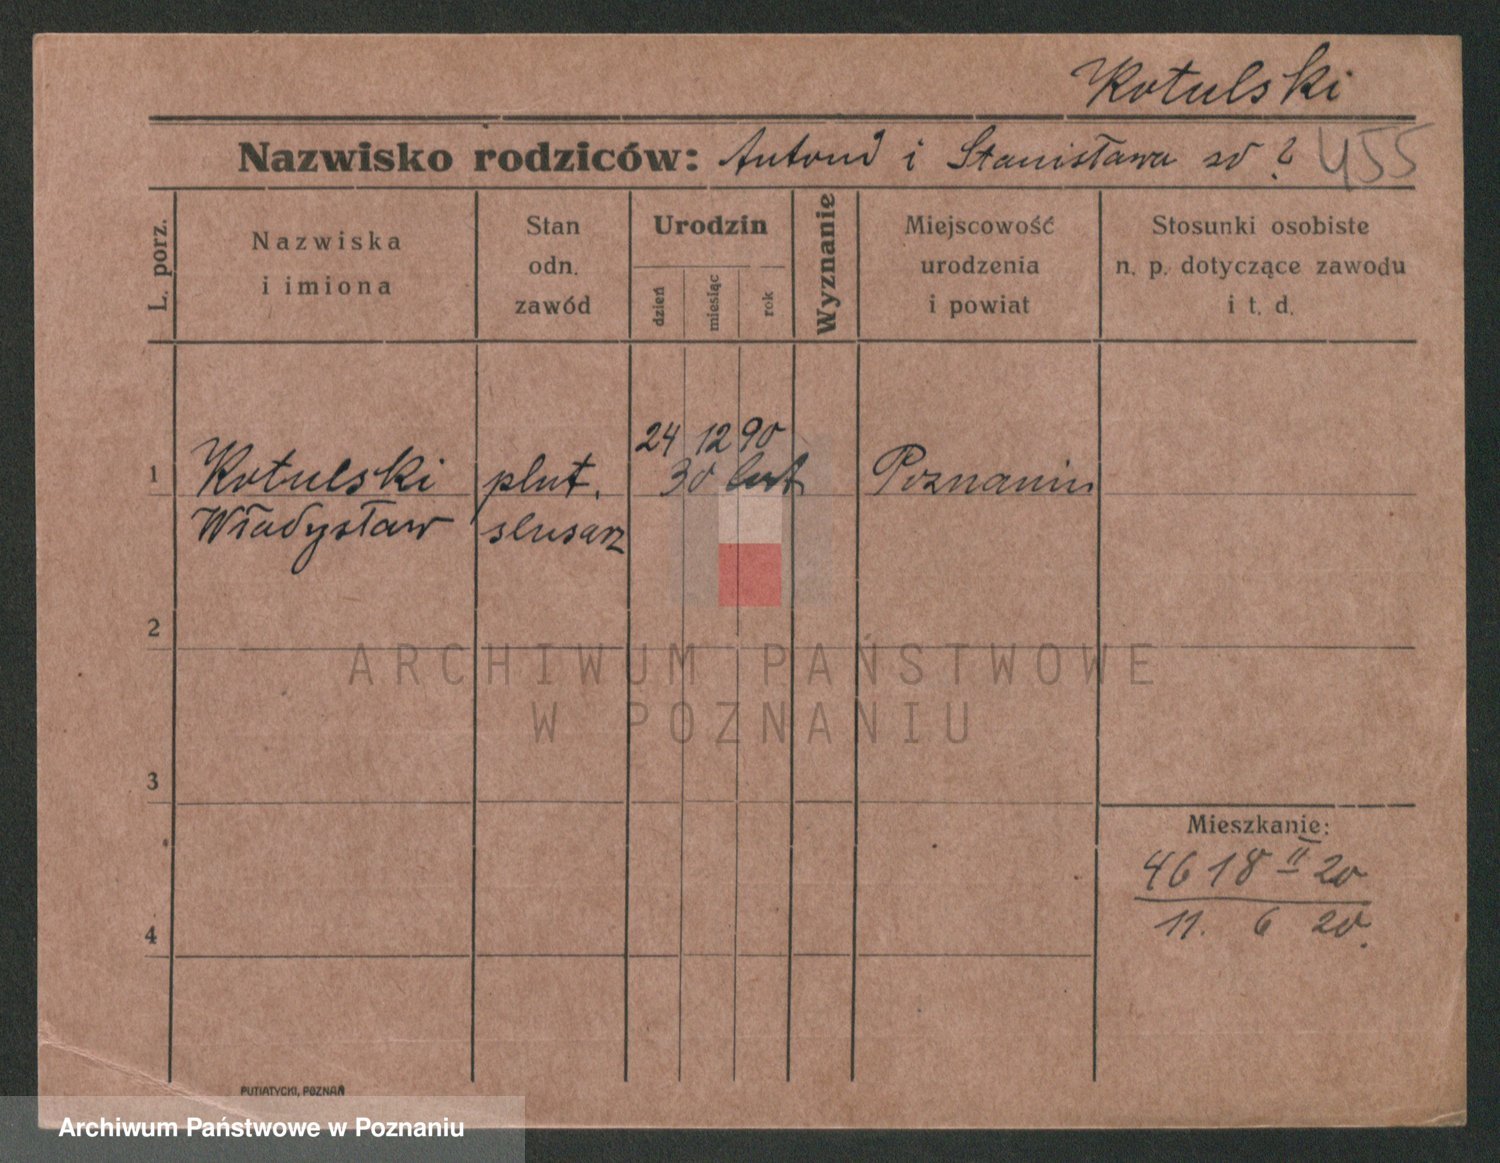 Kotulski
Nazwisko rodziców: Antoni i Stanisława zd ? 455
L. porz.
Nazwiska
i imiona
Stan
odn.
zawód
Urodzin
dzień
miesiąc
rok
Wyznanie
Miejscowość
urodzenia
i powiat
Stosunki osobiste
n. p. dotyczące zawodu
i t. d.
24 12 90
1 Kotulski plut. 30 Poznaniu
Władysław slusarz
2
ARCHIWUM PAŃSTWOWE
W POZNANIU
3
Mieszkanie:
46 18 II 20
4
11. 6 20.
PUTIATYCKI, POZNAŃ
Archiwum Państwowe w Poznaniu